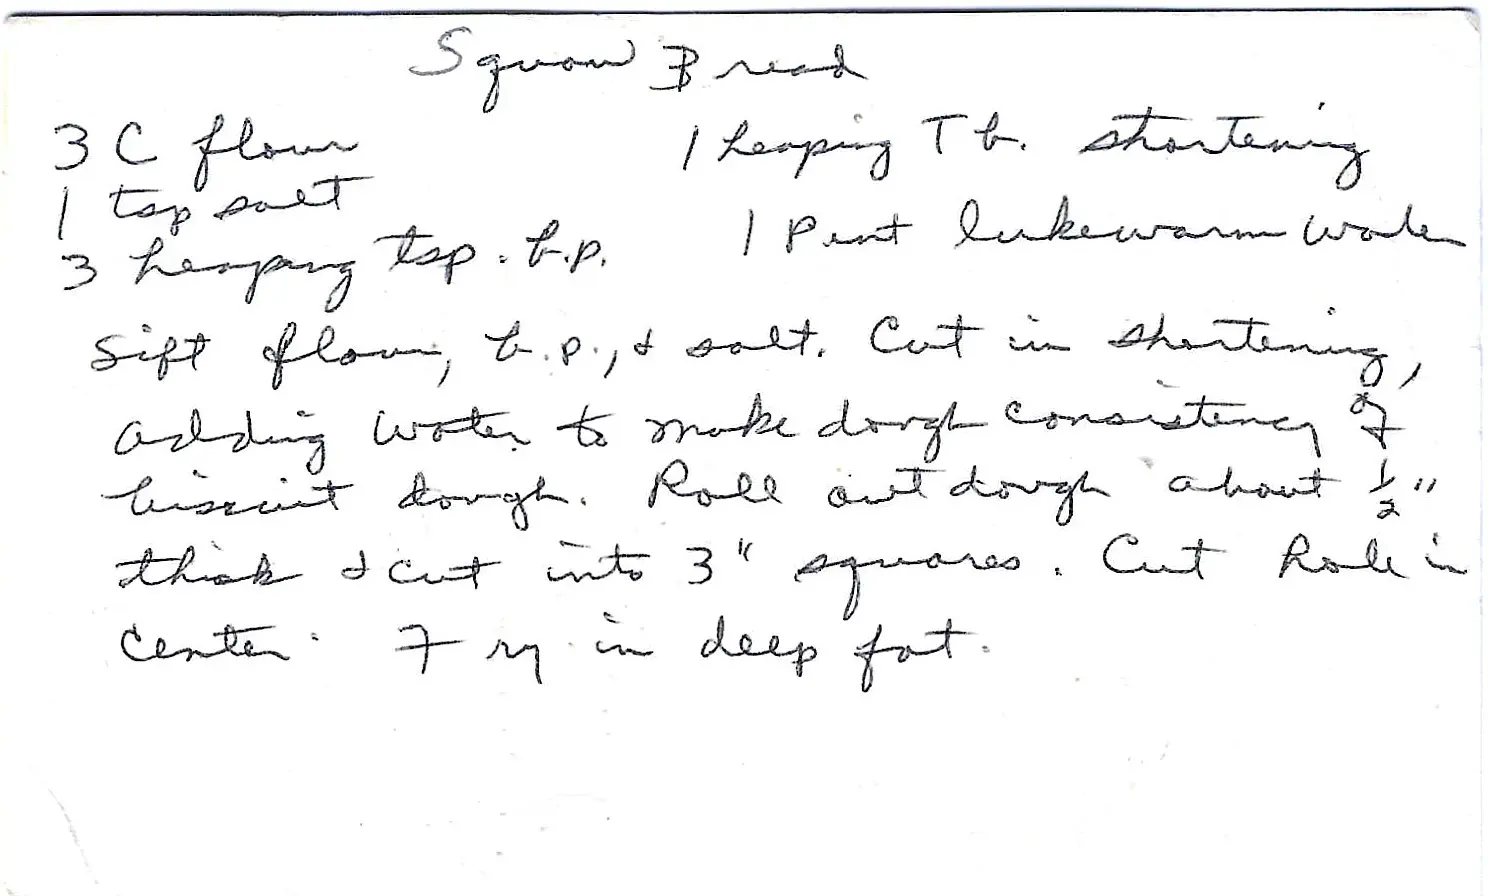 Squaw Bread
3 C flour
1 heaping Tb. shortening
1 tsp salt
1 pint lukewarm water
3 heaping tsp. b.p.
Sift flour, b.p., & salt. Cut in shortening,
adding water to make dough consistency of
biscuit dough. Roll out dough about 1/2"
thick & cut into 3" squares. Cut hole in
center. Fry in deep fat.